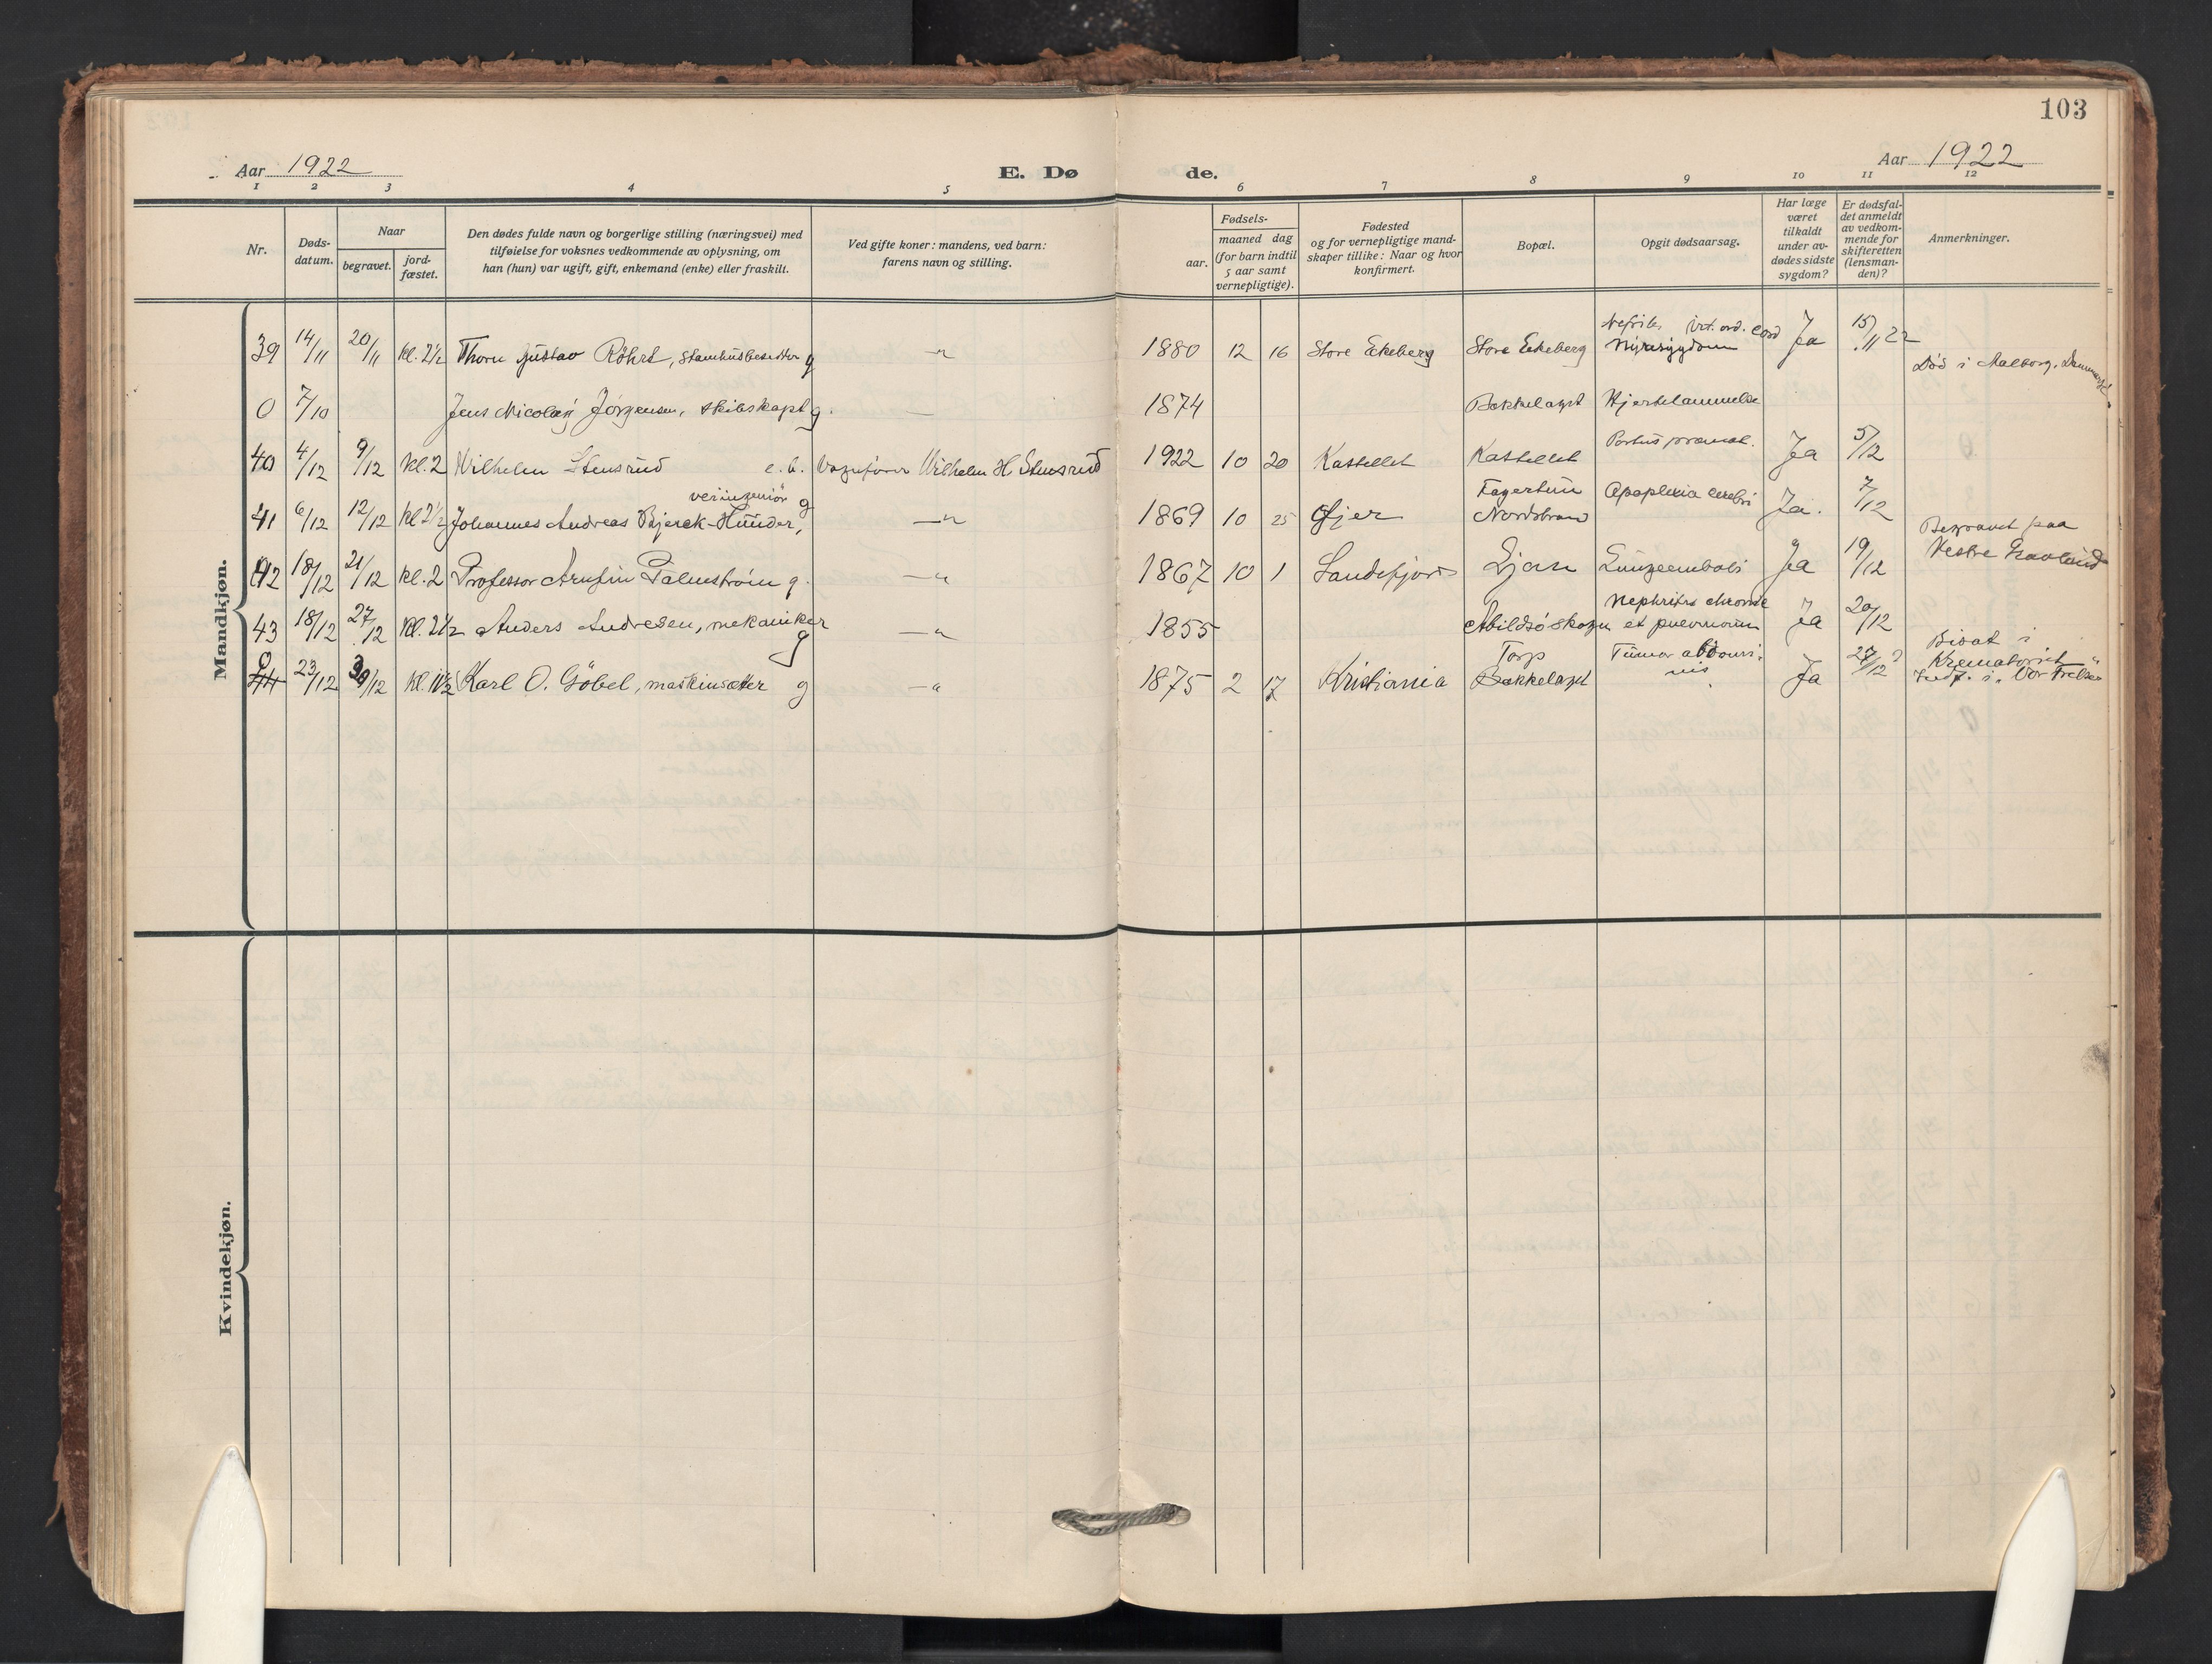 103
Aar 1922
E. Dø
de.
Aar 1922
1 2 3 4 5 6 7 8 9 10 11 12
Nr.
Døds-
datum.
Naar
begravet.
jord-
fæstet.
Den dødes fulde navn og borgerlige stilling (næringsvei) med
tilføielse for voksnes vedkommende av oplysning, om
han (hun) var ugift, gift, enkemand (enke) eller fraskilt.
Ved gifte koner: mandens, ved barn:
farens navn og stilling.
Fødsels-
aar.
maaned dag
(for barn indtil
5 aar samt
vernepligtige).
Fødested
og for vernepligtige mand-
skaper tillike: Naar og hvor
konfirmert.
Bopæl.
Opgit dødsaarsag.
Har læge
været
tilkaldt
under av-
dødes sidste
sygdom?
Er dødsfal-
det anmeldt
av vedkom-
mende for
skifteretten
(lensman-
den)?
Anmerkninger.
Mandkjøn.
39 14/11 20/11 kl. 2½ Thorn Gustav Röhrt, g —"— 1880 12 16 Store Ekeberg Store Ekeberg Nyresygdom Ja 15/11 22
0 7/10 Jens Nicolay Jörgensen, skibskapt g. — 1874 Bækkelaget Hjertelammelse Död i Aalborg, Danmark.
40 4/12 9/12 kl. 2 Wilhelm Stensrud e.b. Vognfører Wilhelm H. Stensrud 1922 10 20 Kastellet Kastellet Partus præmat. Ja 5/12
41 6/12 12/12 kl 2½ Johannes Andreas Bjerck-Hunder, g —"— 1869 10 25 Øjer Nordstrand Apoplexia cerebri Ja. 7/12
42 18/12 21/12 kl. 2 Professor Arnfin Palmström g. —"— 1867 10 1 Sandefjord Ljan Lungeemboli Ja 19/12 Begravet paa
Vestre Gravlund
43 18/12 27/12 kl. 2½ Anders Andresen, mekaniker g —"— 1855 Abildsö skogen Nephritis chronic
et pneumoni Ja 20/12
44 23/12 30/12 kl. 1½ Karl O. Göbel, maskinsætter g —"— 1875 2 17 Kristiania Torp
Bækkelaget Tumor abdomi-
nis Ja 27/12 Bisat i
Krematoriet
Kvindekjøn.